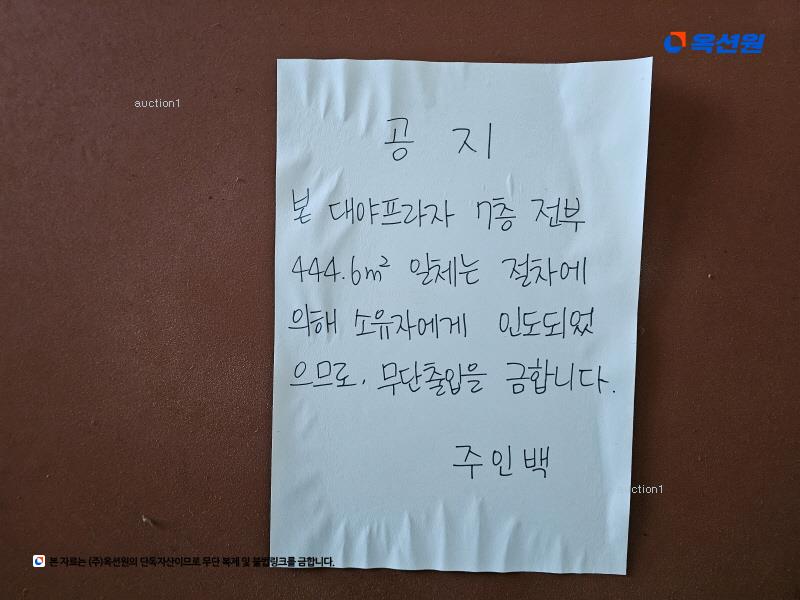 옥션원
auction1
공 지
본 대야프라자 7층 전부
444.6m² 일체는 절차에
의해 소유자에게 인도되었
으므로, 무단출입을 금합니다.
주인백
auction1
본 자료는 (주)옥션원의 단독자산이므로 무단 복제 및 불법링크를 금합니다.